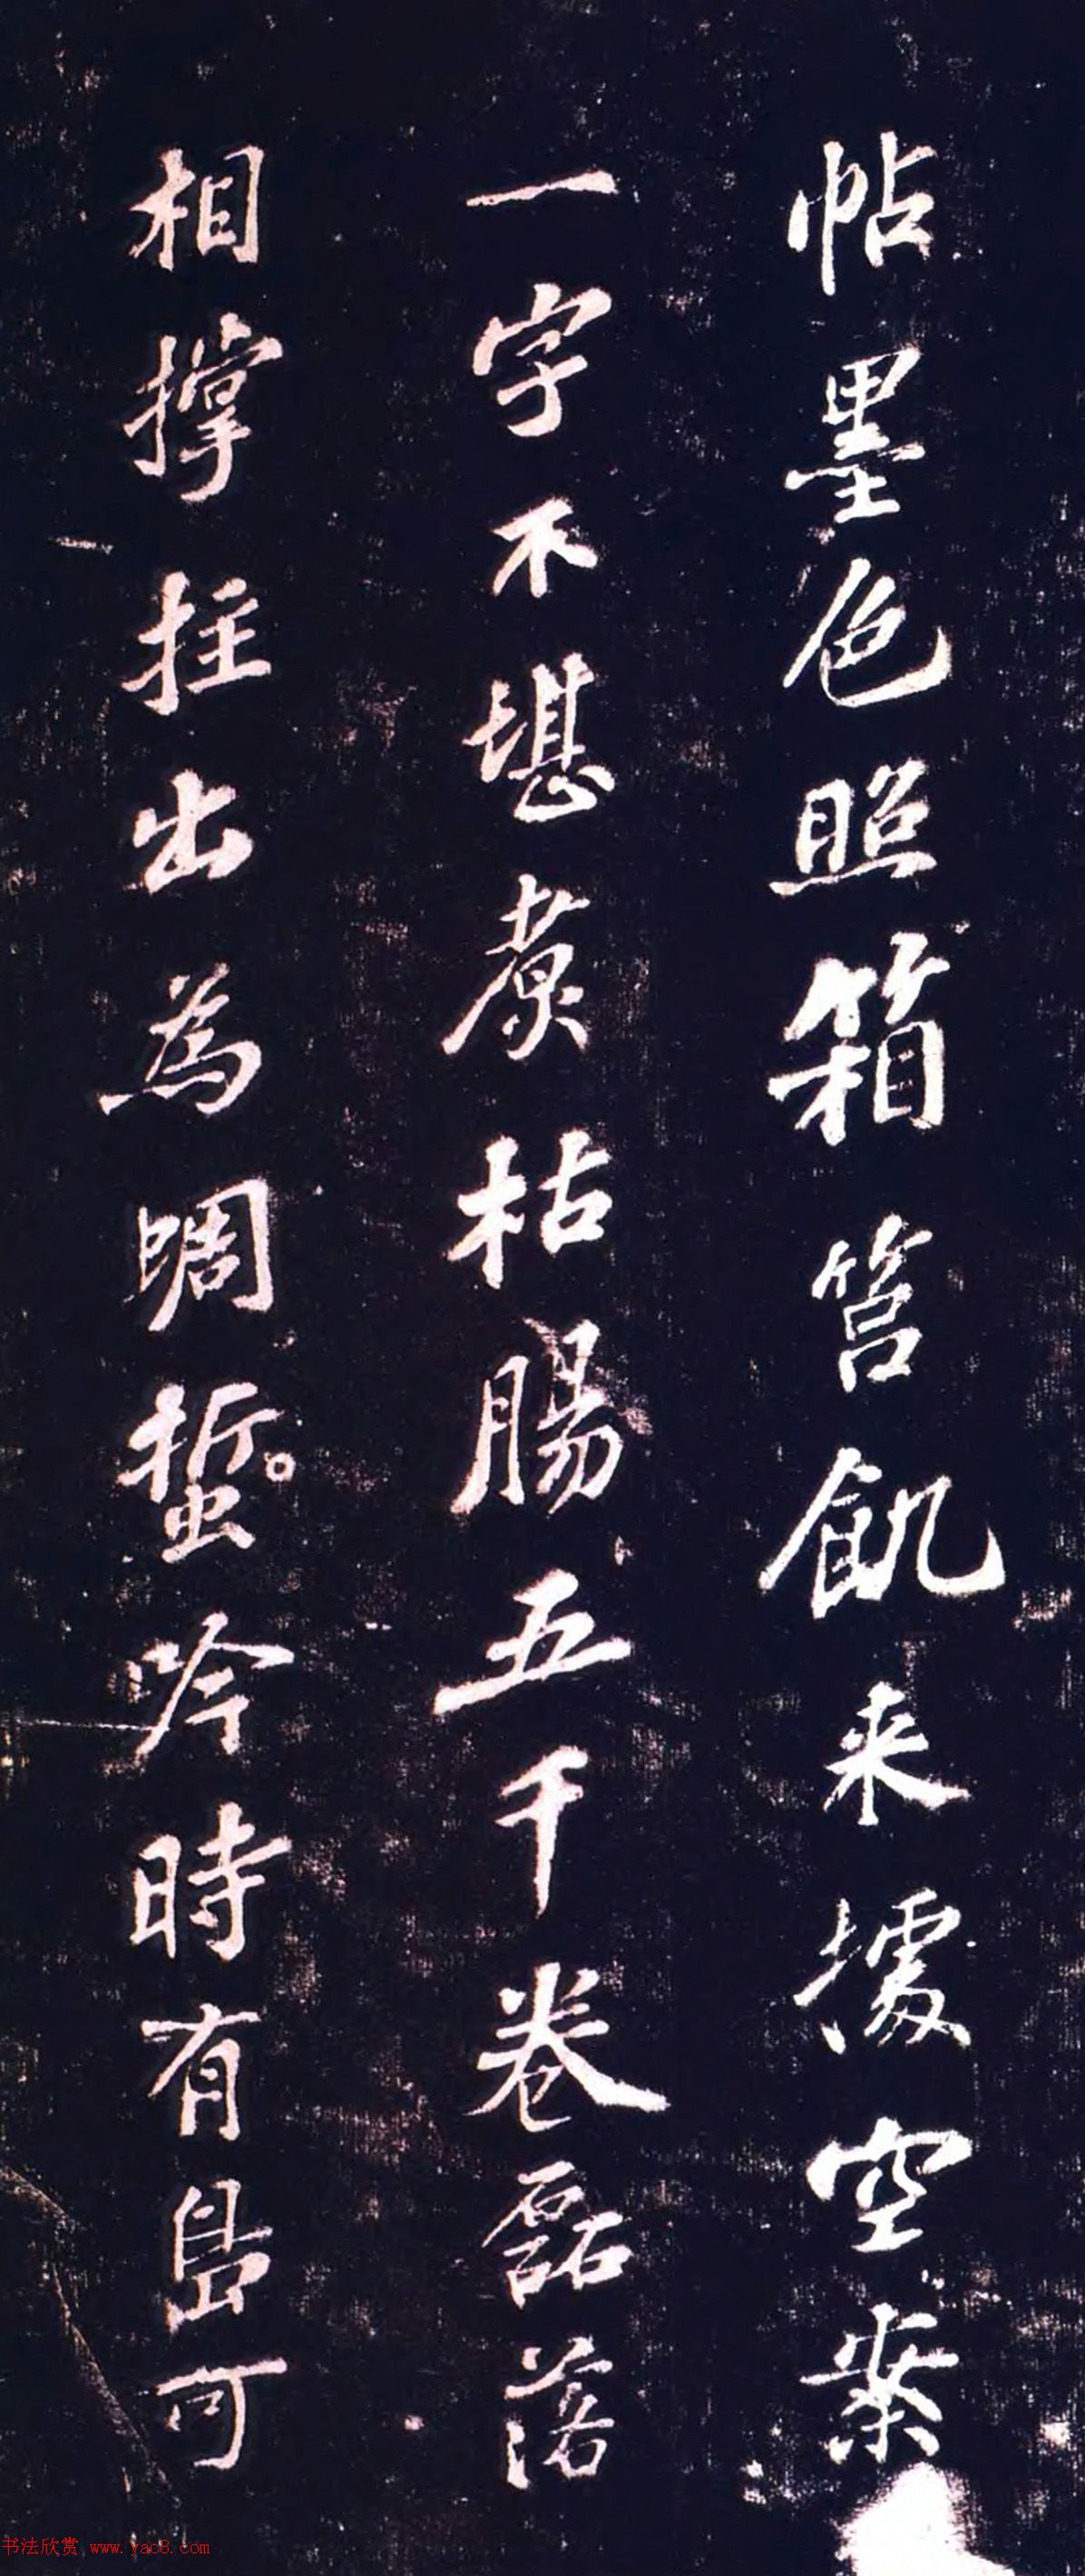 帖墨色照箱筥飢来據空案
一字不堪煮枯腸五千卷磊落
相撐拄出為蜩蜇吟時有島可
书法欣赏 www.yac8.com